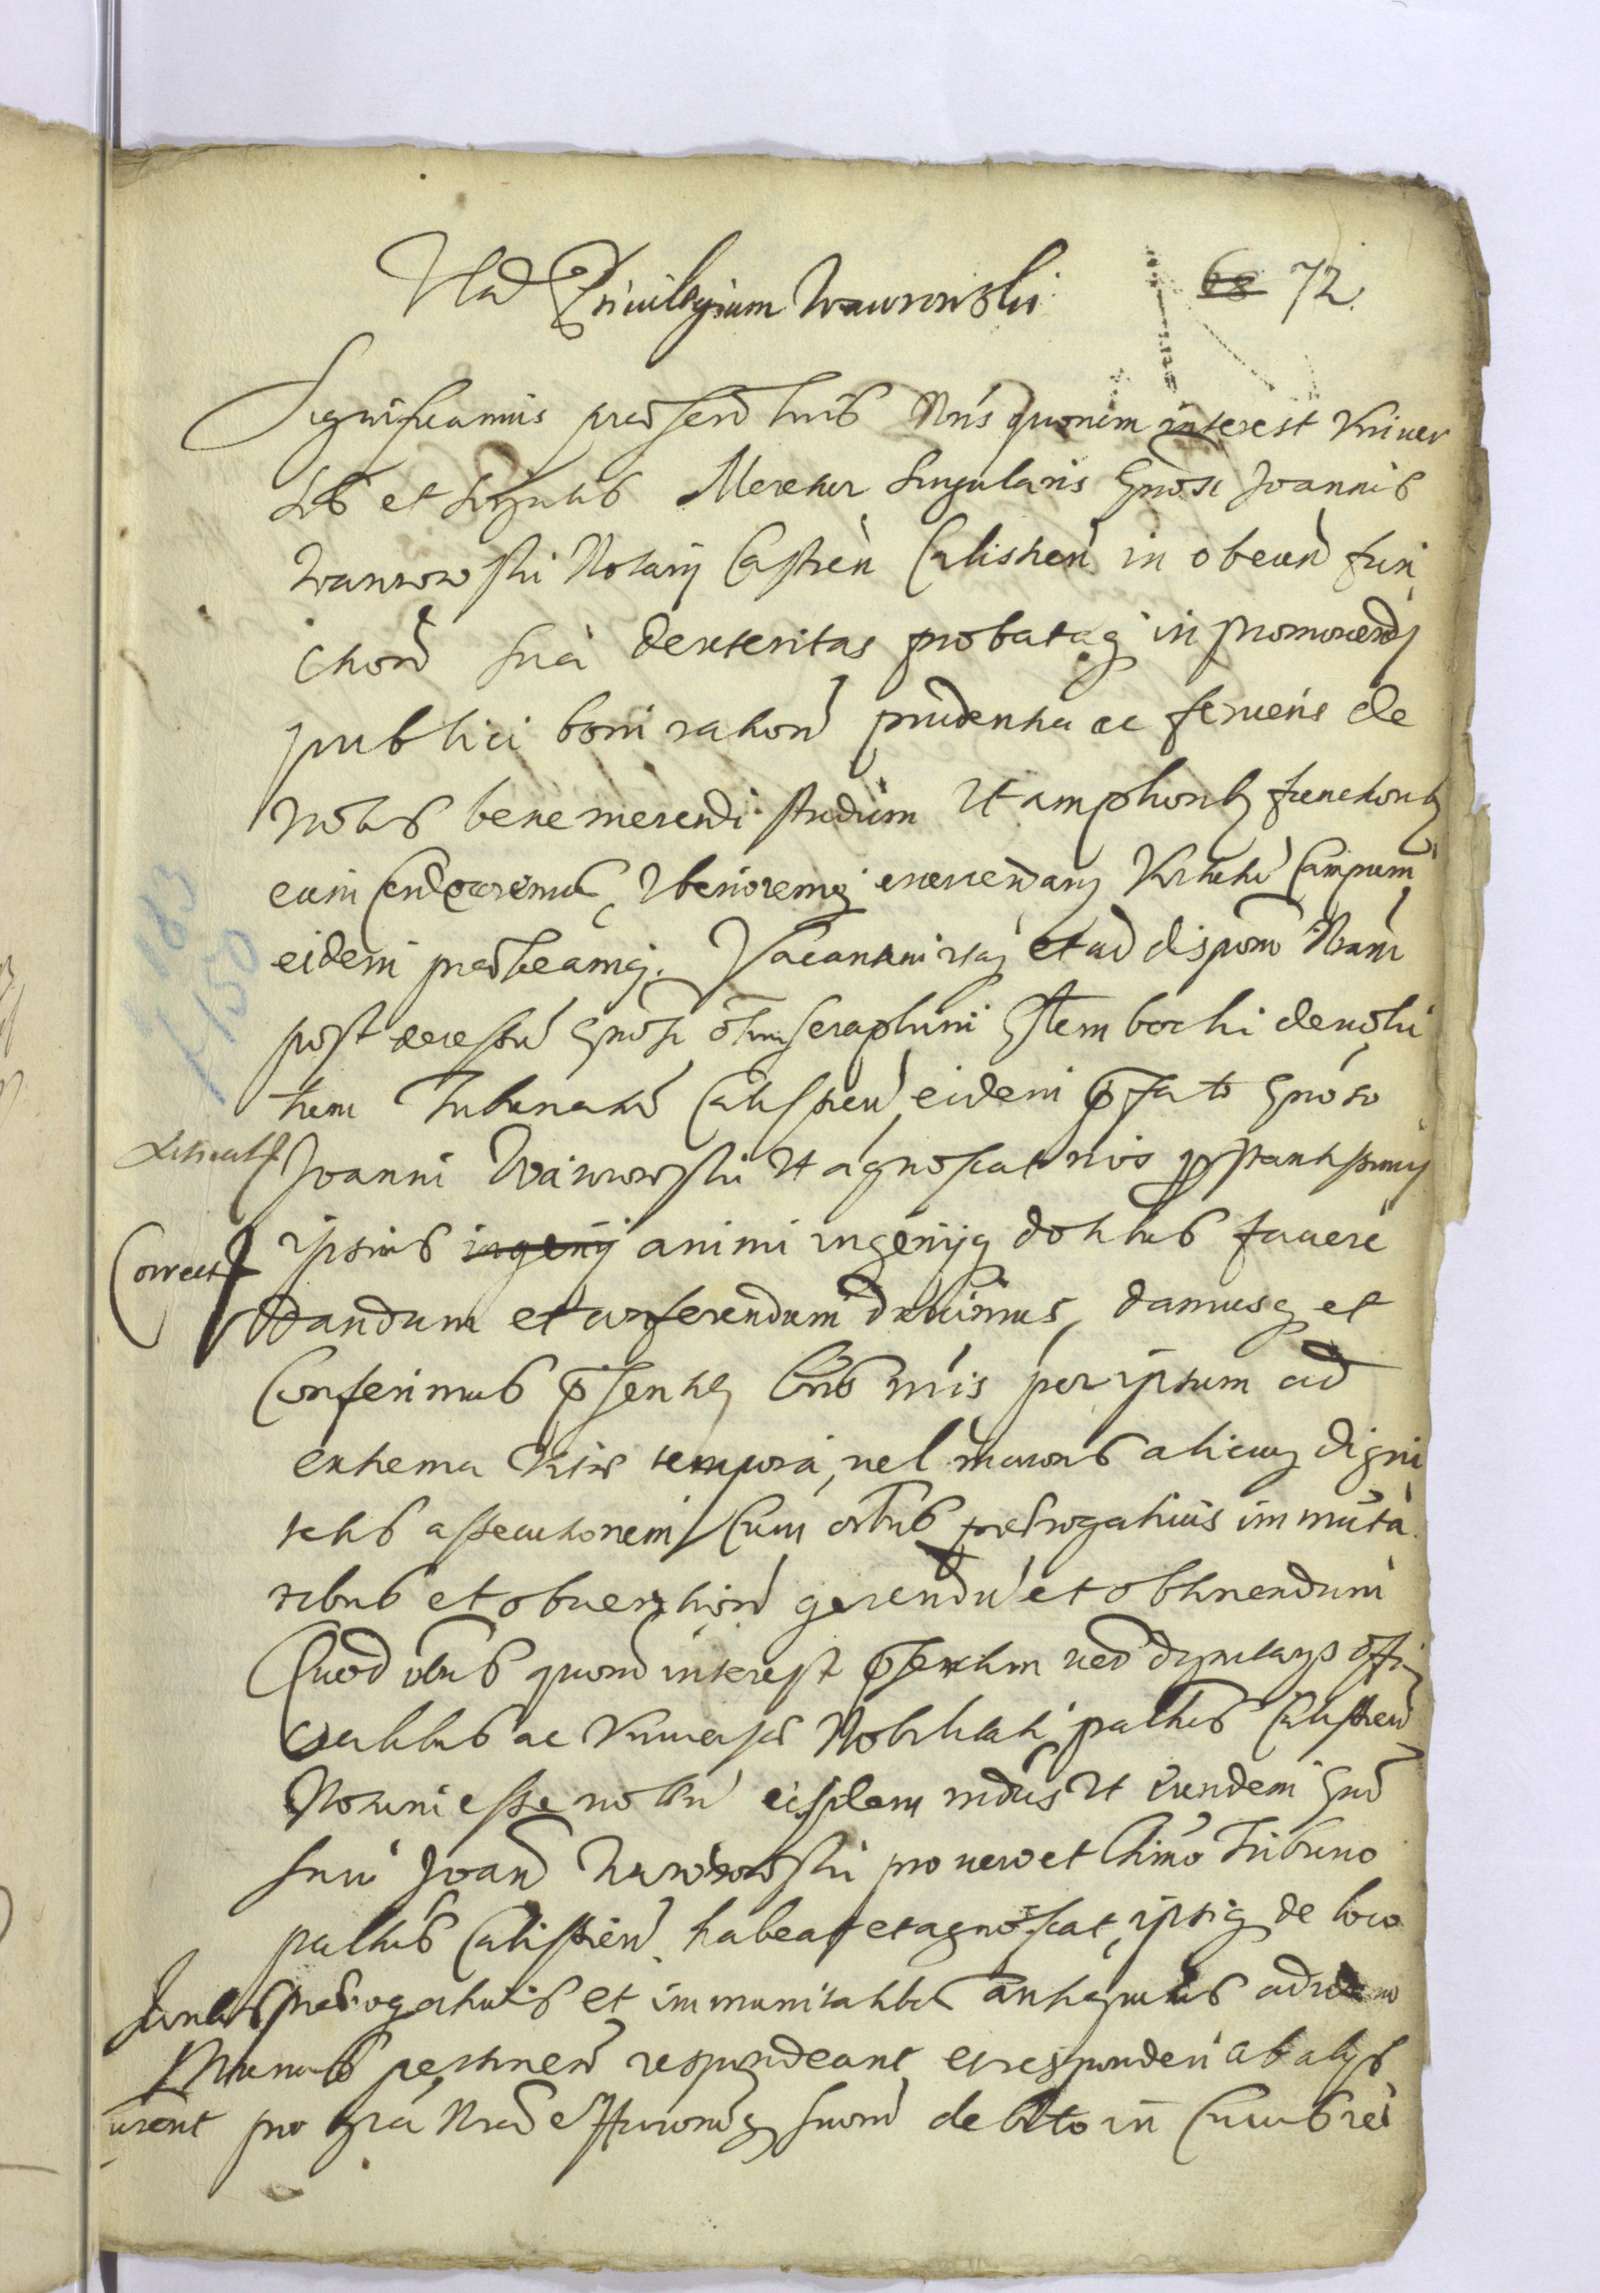 Vlad Priuilegium Wawrowski 68 72.
Significamus praesen tribs Nris quorum interest Vniuer
sis et singulis Meretur singularis Gnosi Joannis
Wawrowski Notarij Castren Calissien in obeun fun
ctioni sua dexteritas probataq in promouendi
publici boni rationi prudentia ac feruens de
nobis bene merendi studium Vt amplioribq functionibq
eum condecoremus, Vberioremq exercendarq Virtutu Campum
eidem praebeamq. Vacantem itaq et ad dispom Nram
post decessu Gnosi olim Seraphini Stembochi deuolu
tum Tribunatu Calissien eidem pfato Gnoso
Joanni Wawrowski Vt agnoscat nos praestantissimis
ipsius ingenij animi ingenijq dotibus fauere
Correct
Dandum et conferendum duximus, damusq et
Conferimus psentibq Lris nris per ipsum ad
extrema Vitae tempora, vel maioris alicuiq digni
tatis assecutionem Cum oibus praerogatiuis immunita
tibus et obuentioni gerendu et obtinendum
Quod oibus quorum interest psertim vero dignitarys offi
cialibus ac Vniuersae Nobilitati pallatus Calissien
Notum esse volu eisdem mdus Vt eundem Gno
sum Joan Wawrowski pro vero et lttimo Tribuno
pallatus Calissien habeat et agnoscat, ipsiq de loco
praerogatiuis et immunitatibus antiquitus ad
pertinen respondeant et responderi ab alys
curent pro gra Nra et officiorq suorum debito in Cuius rei